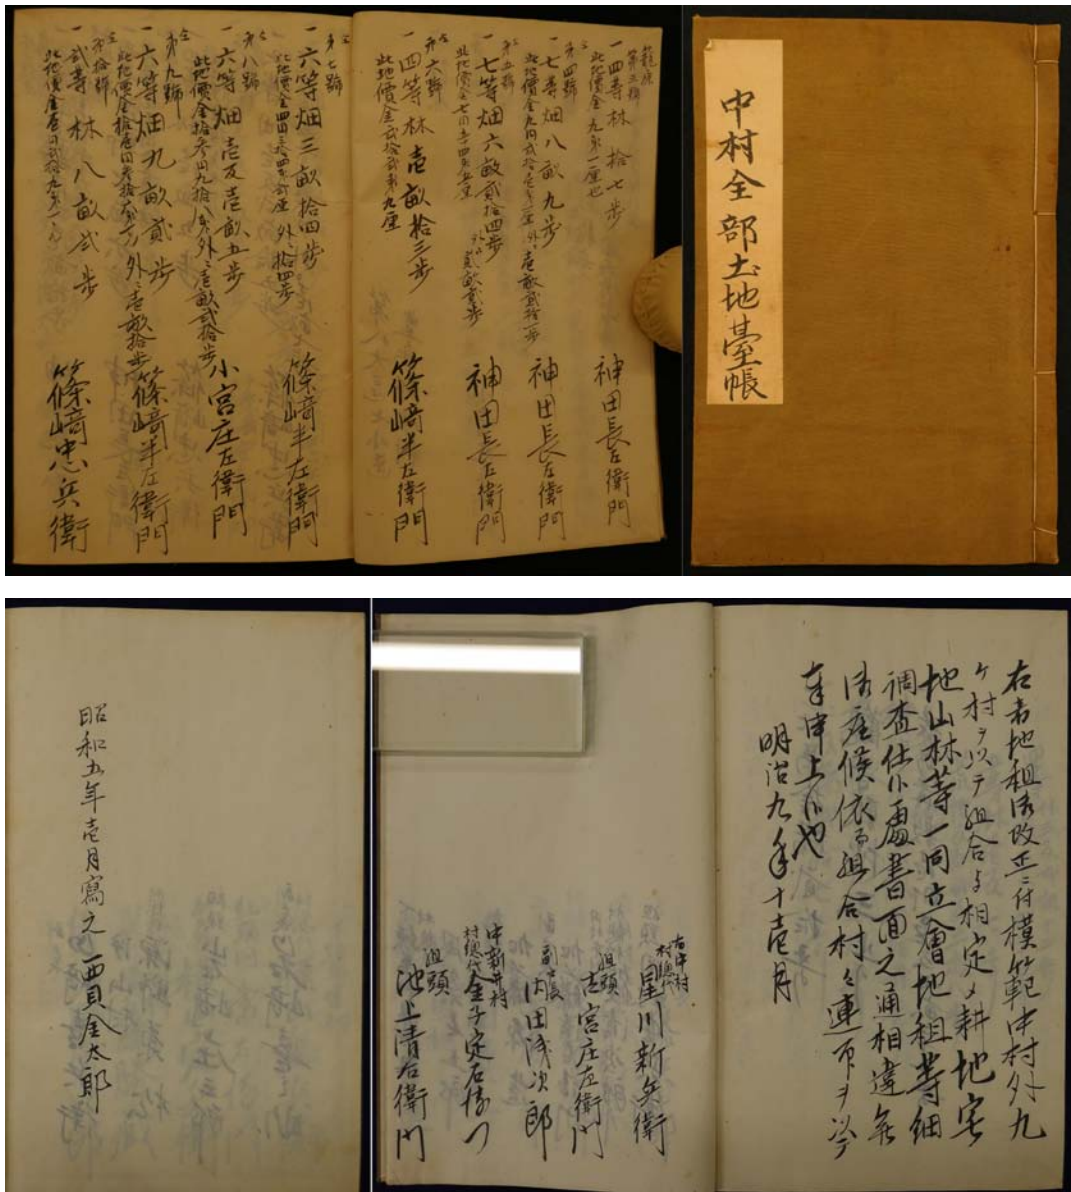 中村全部土地臺帳
第三號
一四等林拾七歩
神田長左衛門
第四號
一七等畑八畝九歩
神田長左衛門
第五號
一七等畑六畝貳拾四歩
神田長左衛門
第六號
一四等林壱畝拾三歩
此地價金貳拾貳銭九厘
篠﨑半左衛門
第七號
一六等畑三畝拾四歩
外ニ拾四歩
篠﨑半左衛門
第八號
一六等畑壱反壱畝五歩
外ニ壱畝貳拾歩
小宮庄左衛門
第九號
一六等畑九畝貳歩
外ニ壱畝拾歩
篠﨑半左衛門
第拾號
一弐等林八畝弐歩
篠﨑忠兵衛
右者地租御改正ニ付模範中村外九
ケ村ヲ以テ組合ト相定メ耕地宅
地山林等一同立會地租等細
調査仕候處書面之通相違無
御座候依而組合村々連印ヲ以
奉申上候也
明治九年十壱月
右中村
村總代
星川新兵衛
組頭
古宮庄左衛門
副戸長
内田浅次郎
中新井村
村總代
金子定右衛門
組頭
池上清右衛門
昭和五年壱月寫之 西貝金太郎